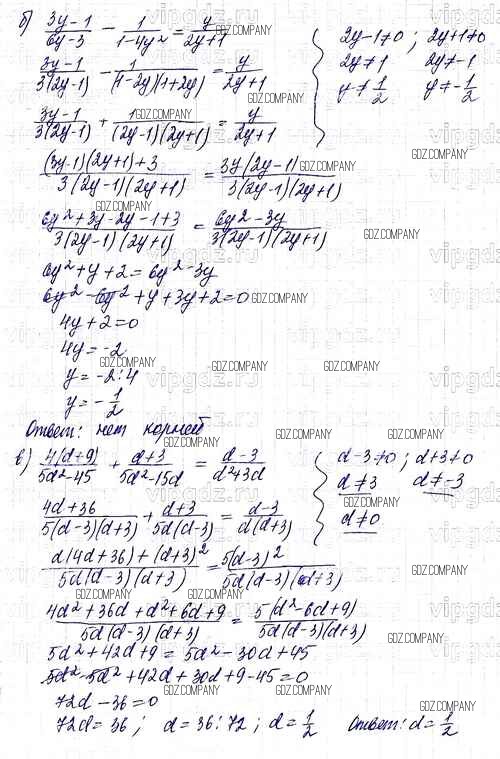 б) (3y-1)/(6y-3) - 1/(1-4y²) = y/(2y+1) { 2y-1≠0 ; 2y+1≠0
(3y-1)/(3(2y-1)) - 1/((1-2y)(1+2y)) = y/(2y+1) 2y≠1 2y≠-1
(3y-1)/(3(2y-1)) + 1/((2y-1)(2y+1)) = y/(2y+1) y≠1/2 y≠-1/2
((3y-1)(2y+1)+3)/(3(2y-1)(2y+1)) = 3y(2y-1)/(3(2y-1)(2y+1))
(6y²+3y-2y-1+3)/(3(2y-1)(2y+1)) = (6y²-3y)/(3(2y-1)(2y+1))
6y²+y+2=6y²-3y
6y²-6y²+y+3y+2=0
4y+2=0
4y=-2
y=-2:4
y=-1/2
Ответ: нет корней
в) 4(d+9)/(5d²-45) + (d+3)/(5d²-15d) = (d-3)/(d²+3d) { d-3≠0 ; d+3≠0
d≠3 d≠-3
(4d+36)/(5(d-3)(d+3)) + (d+3)/(5d(d-3)) = (d-3)/(d(d+3)) d≠0
(d(4d+36)+(d+3)²)/(5d(d-3)(d+3)) = 5(d-3)²/(5d(d-3)(d+3))
(4d²+36d+d²+6d+9)/(5d(d-3)(d+3)) = 5(d²-6d+9)/(5d(d-3)(d+3))
5d²+42d+9=5d²-30d+45
5d²-5d²+42d+30d+9-45=0
72d-36=0
72d=36; d=36:72; d=1/2 Ответ: d=1/2
GDZ.COMPANY
vipgdz.ru